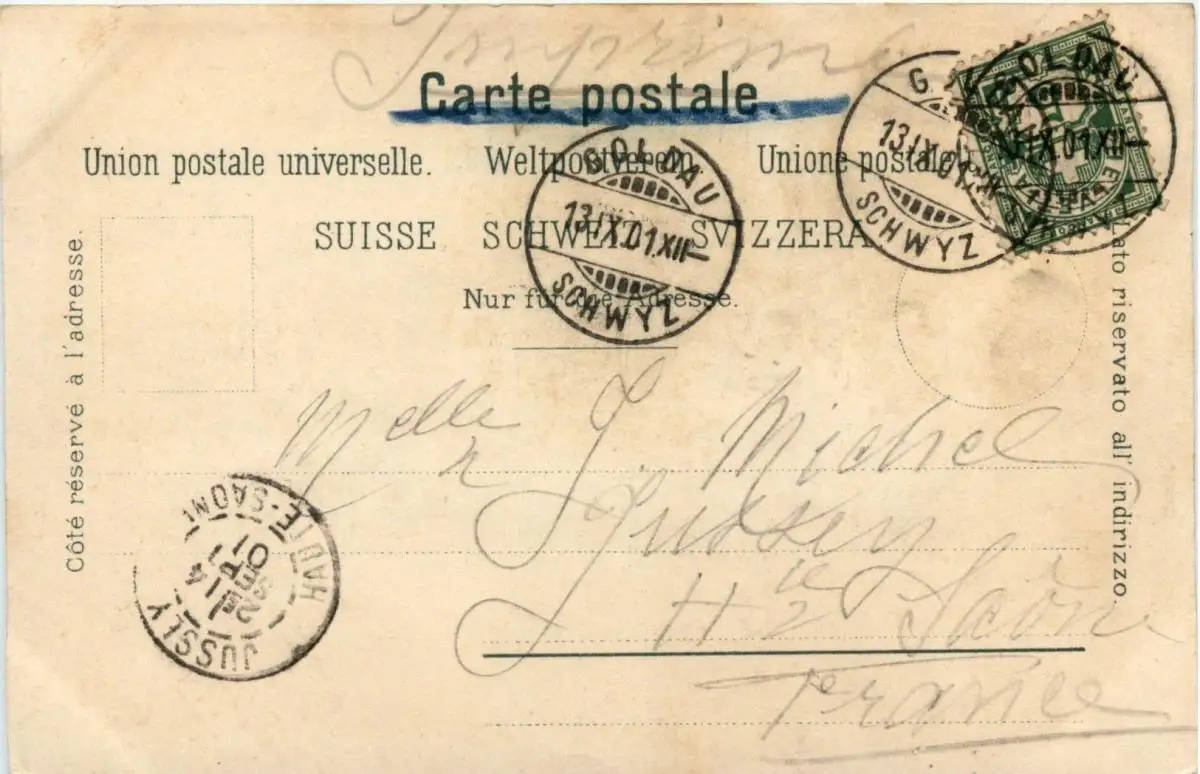 Imprimé
Carte postale.
Union postale universelle. Weltpostverein. Unione postale
SUISSE SCHWEIZ SVIZZERA
Nur für die Adresse.
Côté réservé à l'adresse.
Lato riservato all' indirizzo.
GOLDAU
13.IX.01.XII-
SCHWYZ
GOLDAU
13.IX.01.XII-
SCHWYZ
GOLDAU
IX.01.XII-
Melle J. Michel
Jussey
Hte Saône
France
JUSSEY
HAUTE-SAÔNE
14
SEPT
01